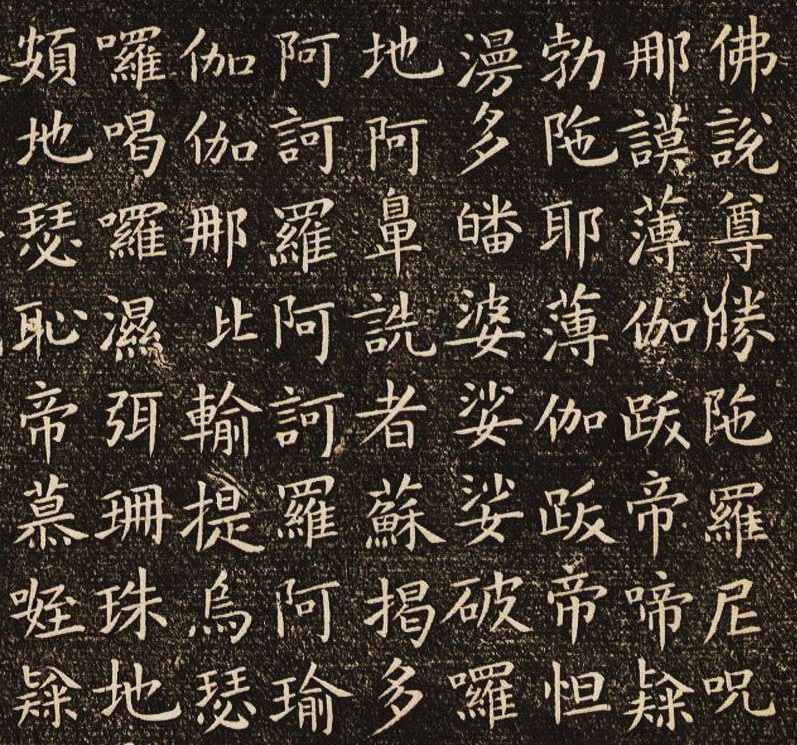 佛說尊勝陁羅尼呪
那謨薄伽跋帝啼隸
勃陁耶薄伽跋帝怛
漫多皤婆娑娑破囉
地阿鼻詵者蘇揭多
阿訶羅阿訶羅阿瑜
伽伽那比輸提烏瑟
囉喝囉濕弭珊珠地
頞地瑟恥帝慕㘸隸